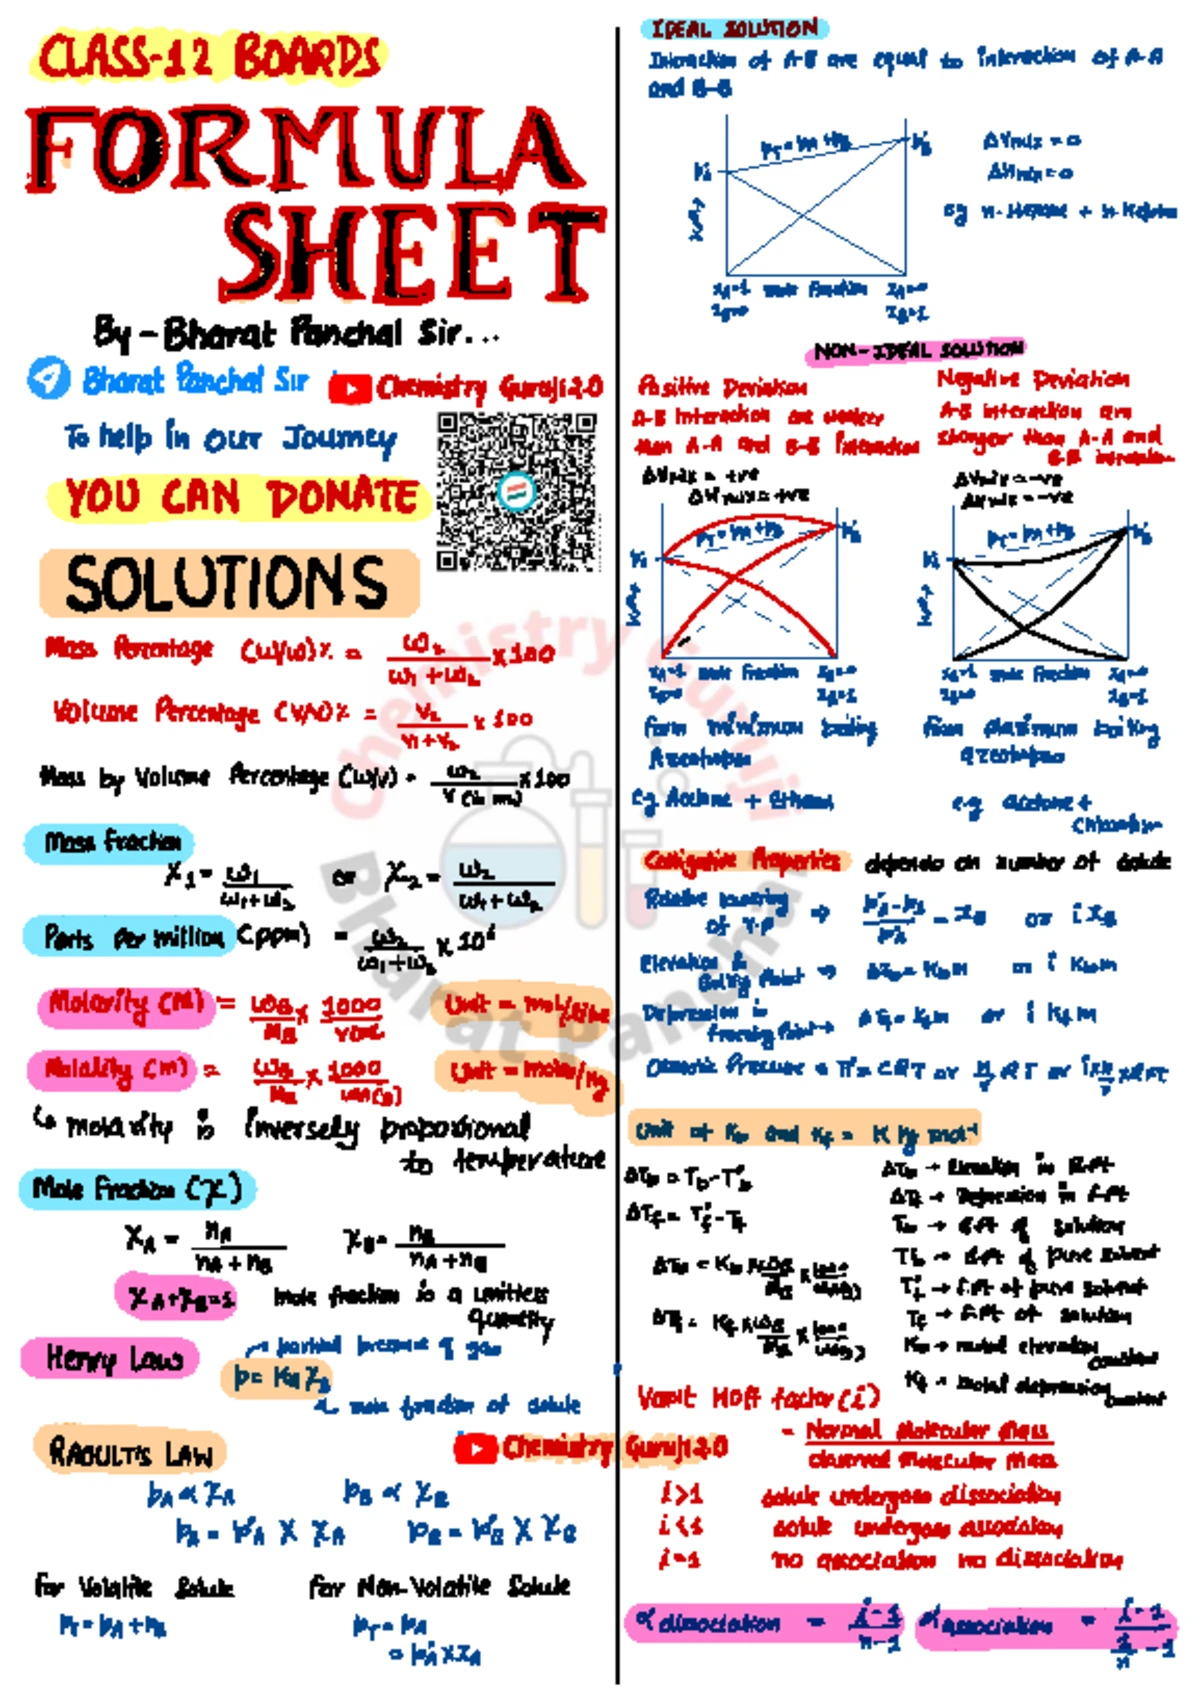 CLASS-12 BOARDS
FORMULA
SHEET
By - Bharat Panchal Sir...
Bharat Panchal Sir
Chemistry Guruji 2.0
To help in our Journey
YOU CAN DONATE
SOLUTIONS
Mass Percentage (w/w)% = w₂ / (w₁+w₂) × 100
Volume Percentage (v/v)% = v₂ / (v₁+v₂) × 100
Mass by Volume Percentage (w/v) = w₂ / V (in mL) × 100
Mass fraction
X₁ = w₁ / (w₁+w₂) or X₂ = w₂ / (w₁+w₂)
Parts per million (ppm) = w₂ / (w₁+w₂) × 10⁶
Molarity (M) = w_B / M_B × 1000 / V(mL) Unit = mol/litre
Molality (m) = w_B / M_B × 1000 / w_A(g) Unit = moles/kg
↳ molarity is inversely proportional
to temperature
Mole Fraction (χ)
χ_A = n_A / (n_A + n_B) χ_B = n_B / (n_A + n_B)
χ_A + χ_B = 1 mole fraction is a unitless
quantity
Henry Law
partial pressure of gas
p = K_H χ_B
mole fraction of solute
RAOULT'S LAW
Chemistry Guruji 2.0
p_A ∝ χ_A p_B ∝ χ_B
p_A = p°_A × χ_A p_B = p°_B × χ_B
for Volatile Solute for Non-Volatile Solute
p_T = p_A + p_B p_T = p_A
= p°_A × χ_A
IDEAL SOLUTION
Interaction of A-B are equal to interaction of A-A
and B-B
p_T = p_A + p_B
p°_A
p°_B
ΔVmix = 0
ΔHmix = 0
eg n-Hexane + n-Heptane
χ_A=1 mole fraction χ_A=0
χ_B=0 χ_B=1
NON-IDEAL SOLUTION
Positive Deviation
A-B Interaction are weaker
than A-A and B-B Interaction
ΔVmix = +ve
ΔHmix = +ve
p_T = p_A + p_B
χ_A=1 mole fraction χ_A=0
χ_B=0 χ_B=1
form minimum boiling
Azeotropes
eg Acetone + Ethanol
Negative Deviation
A-B interaction are
stronger than A-A and
B-B interaction
ΔVmix = -ve
ΔHmix = -ve
p_T = p_A + p_B
χ_A=1 mole fraction χ_A=0
χ_B=0 χ_B=1
form maximum boiling
azeotropes
e.g acetone +
Chloroform
Colligative Properties depends on number of solute
Relative lowering
of V.P ⇒ (p°_A - p_A) / p°_A = χ_B or i χ_B
Elevation in
Boiling Point ⇒ ΔT_b = K_b m or i K_b m
Depression in
freezing Point → ΔT_f = K_f m or i K_f m
Osmotic Pressure = π = CRT or n/V RT or i × n/V × RT
Unit of K_b and K_f = K kg mol⁻¹
ΔT_b = T_b - T°_b
ΔT_f = T°_f - T_f
ΔT_b = K_b × w_B / M_B × 1000 / w_A(g)
ΔT_f = K_f × w_B / M_B × 1000 / w_A(g)
ΔT_b → Elevation in B.Pt
ΔT_f → Depression in F.Pt
T_b → B.Pt of solution
T°_b → B.Pt of pure solvent
T°_f → F.Pt of pure solvent
T_f → F.Pt of solution
K_b → molal elevation
constant
K_f → molal depression
constant
Vant Hoff factor (i)
= Normal Molecular Mass
observed Molecular Mass
i>1 solute undergoes dissociation
i<1 solute undergoes association
i=1 no association no dissociation
α dissociation = (i-1) / (n-1) α association = (i-1) / (1/n - 1)
Chemistry Guruji
Bharat Panchal